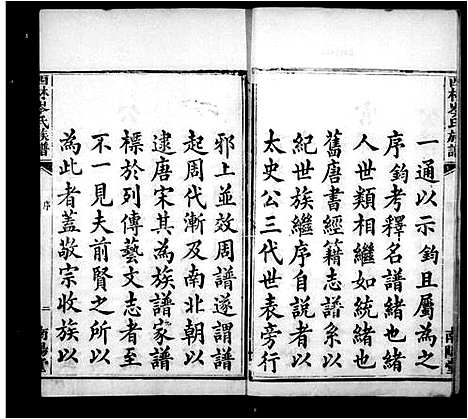 一通以示鈞且屬為之
序鈞考釋名譜緒也緒
人世類相繼如統緒也
舊唐書經籍志譜系以
紀世族繼序自說者以
太史公三代世表旁行
邪上並效周譜遂謂譜
起周代漸及南北朝以
逮唐宋其為族譜家譜
標於列傳藝文志者至
不一見夫前賢之所以
為此者蓋敬宗收族以
西林岑氏族譜
序
二
南陽堂
西林岑氏族譜
南陽堂